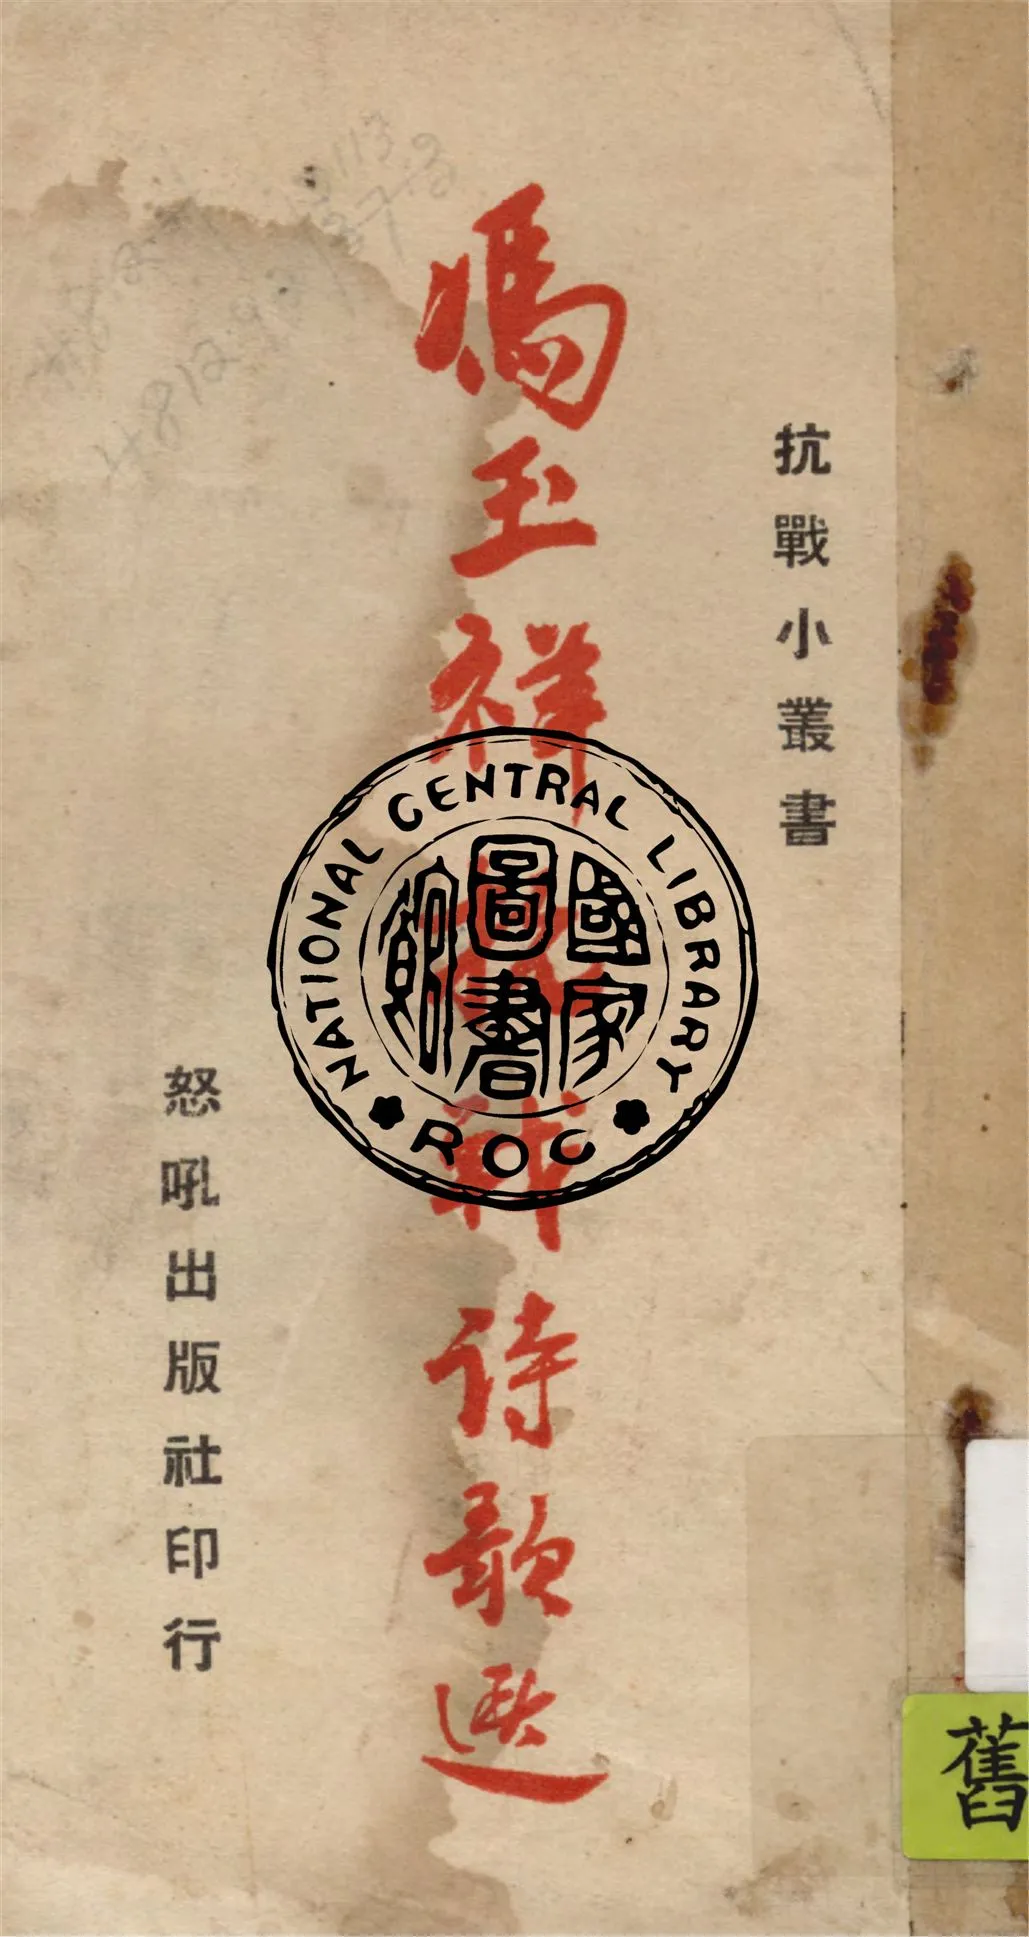 抗戰小叢書
馮玉祥抗戰詩歌選
怒吼出版社印行
NATIONAL CENTRAL LIBRARY
國家圖書館
ROC
舊